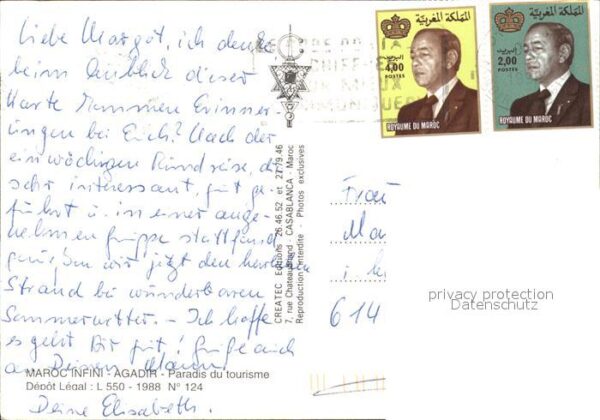 Liebe Margot, ich denke
beim Anblick dieser
Karte kommen Erinner-
ungen bei Euch? Nach der
einwöchigen Rundreise, die
sehr interessant, gut ge-
führt u. in einer ange-
nehmen Gruppe stattfand
genießen wir jetzt den herrlichen
Strand bei wunderbarem
Sommerwetter. - Ich hoffe
es geht Dir gut! Grüße auch
an Deinen Mann
Deine Elisabeth.
MAROC INFINI - AGADIR - Paradis du tourisme
Dépôt Légal : L 550 - 1988 N° 124
CREATEC Editions 26.46.52 et 27.79.46
7, rue Chateaubriand CASABLANCA - Maroc
Reproduction interdite - Photos exclusives
المملكة المغربية
البريد
4,00
POSTES
ROYAUME DU MAROC
المملكة المغربية
البريد
2,00
POSTES
ROYAUME DU MAROC
Frau
Ma
614
privacy protection
Datenschutz